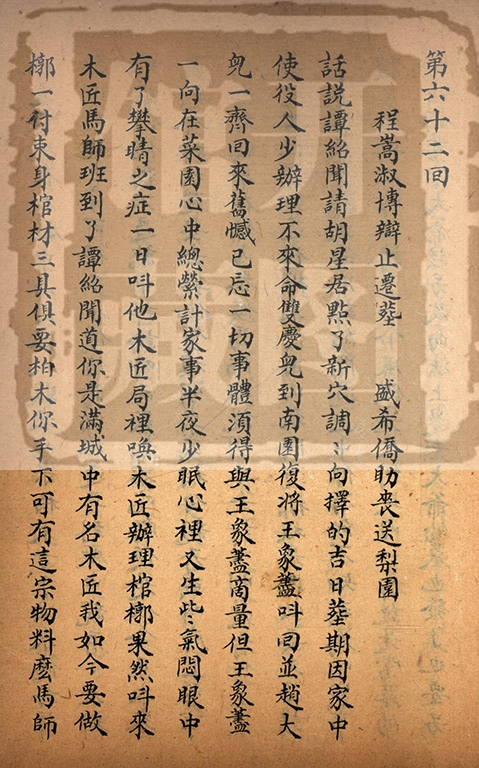 第六十二回
程嵩淑博辯止遷葬 盛希僑助喪送梨園
話説譚紹聞請胡星居點了新穴調〻向擇的吉日葬期因家中
使役人少辦理不來命雙慶兒到南園復將王象藎呌回並趙大
兒一齊回來舊憾已忘一切事體須得與王象藎商量但王象藎
一向在菜園心中總縈計家事半夜少眠心裡又生些氣悶眼中
有了攀睛之症一日呌他木匠局裡喚木匠辦理棺槨果然呌來
木匠馬師班到了譚紹聞道你是滿城中有名木匠我如今要做
槨一付束身棺材三具俱要柏木你手下可有這宗物料麽馬師